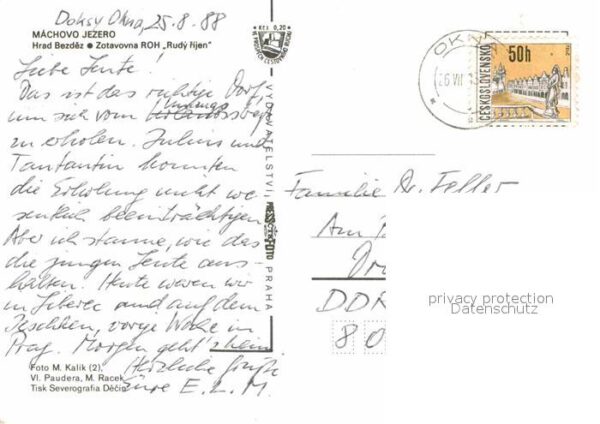 Doksy Okna, 25.8.88
MÁCHOVO JEZERO
Hrad Bezděz ● Zotavovna ROH „Rudý říjen"
Liebe Leute!
Das ist das richtige Dorf,
um sich vom Umzugs
zu erholen. Julius und
konnten
die Erholung nicht we-
sentlich beeinträchtigen.
Aber ich staune, wie das
die jungen Leute aus-
halten. Heute waren wir
in Liberec und auf dem
Jeschken, vorige Woche in
Prag. Morgen geht's heim.
Herzliche Grüße
Eure E. L. M.
Foto M. Kalík (2),
Vl. Paudera, M. Racek
Tisk Severografia Děčín
Kčs 0,20
VYDAVATELSTVÍ
PRESSFOTO
PRAHA
OKNA
ČESKOSLOVENSKO
50h
Familie Dr. Feller
Am
DDR
80
privacy protection
Datenschutz